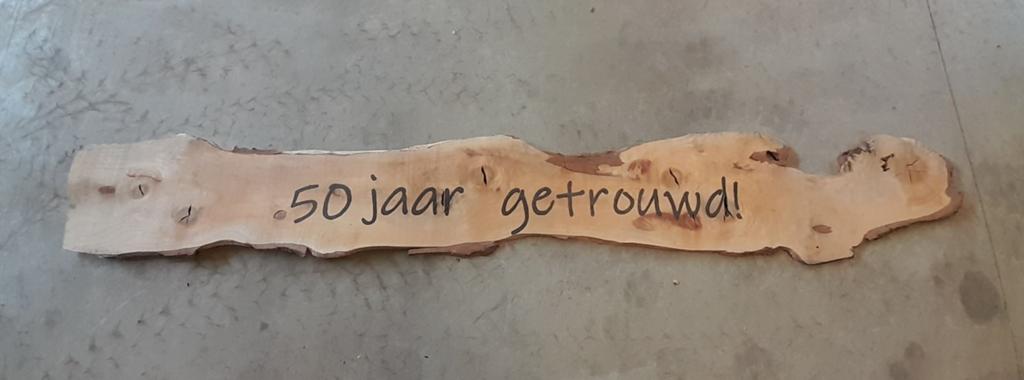 50 jaar getrouwd!